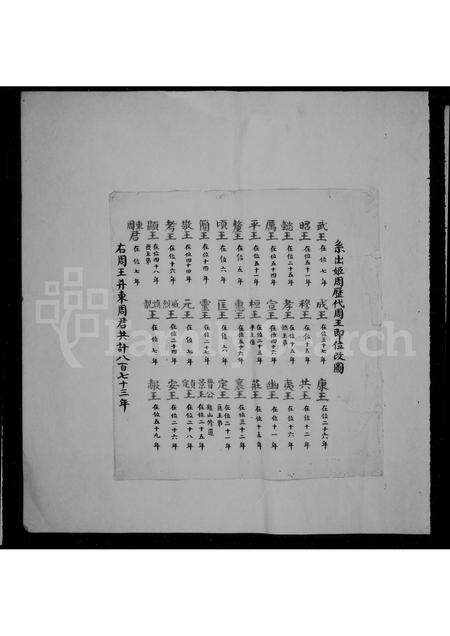 系出姬周歷代周王即位改圖
武王 在位七年 成王 在位三十七年 康王 在位二十六年
昭王 在位五十一年 穆王 在位五十五年 共王 在位十二年
懿王 在位二十五年 孝王 在位十五年 夷王 在位十六年
厲王 在位五十四年 宣王 在位四十六年 幽王 在位十一年
平王 在位五十一年 桓王 在位二十三年 莊王 在位十五年
釐王 在位五年 惠王 在位二十五年 襄王 在位三十二年
頃王 在位六年 匡王 在位六年 定王 匡王弟 在位二十一年
簡王 在位十四年 靈王 在位二十七年 景王 在位二十五年
敬王 在位四十四年 元王 在位七年 貞定王 在位二十八年
考王 在位十六年 威烈王 在位二十四年 安王 在位二十六年
顯王 在位四十八年 慎靚王 在位六年 赧王 在位五十九年
東周君 在位七年
右周王并東周君共計八百七十三年
familysearch